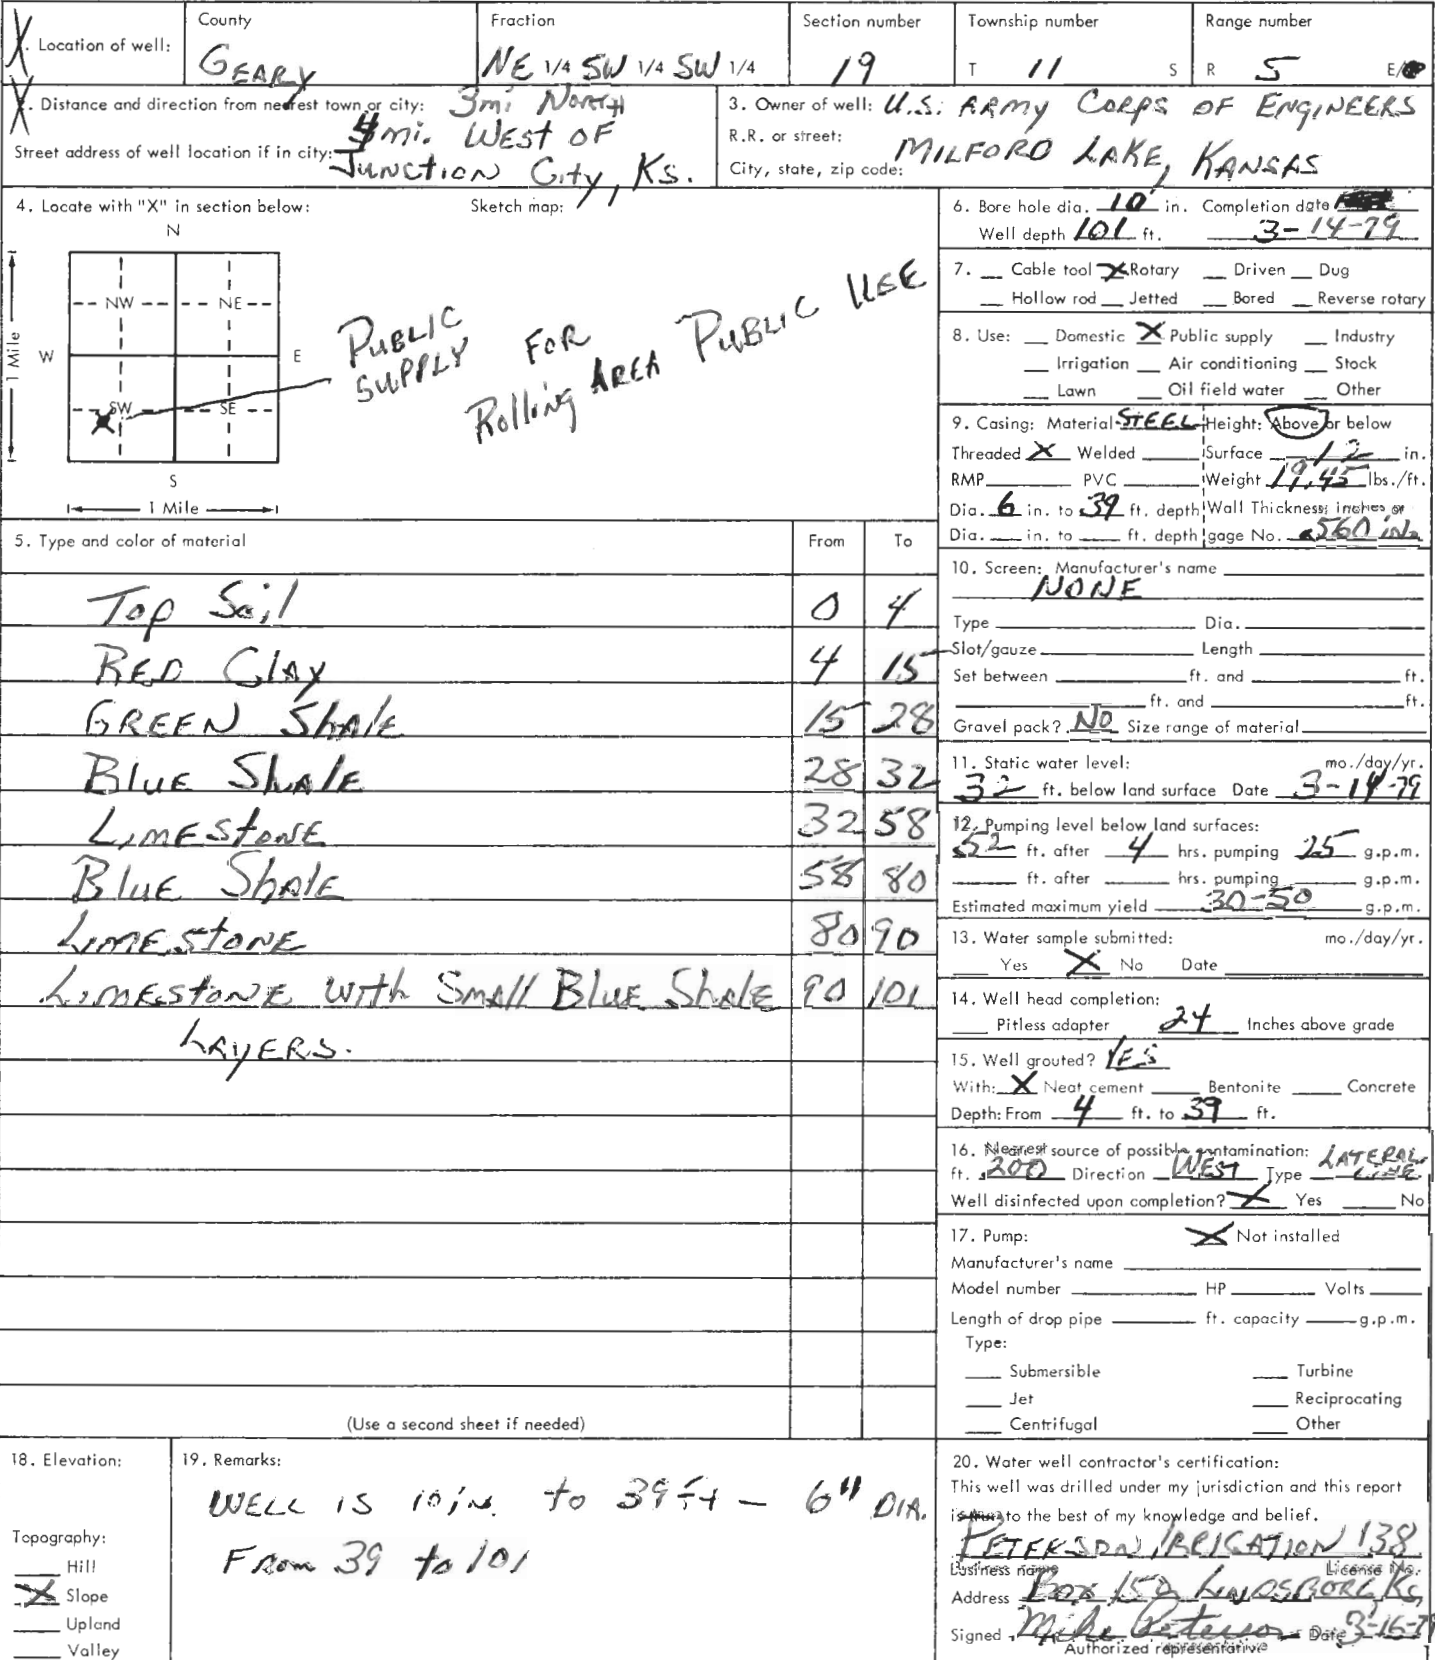 . Location of well:
County
GEARY
Fraction
NE 1/4 SW 1/4 SW 1/4
Section number
19
Township number
T 11 S
Range number
R 5 E/
. Distance and direction from nearest town or city: 3mi North
4mi. WEST OF
Street address of well location if in city:
JUNCTION City, Ks.
3. Owner of well: U.S. ARMY CORPS OF ENGINEERS
R.R. or street:
City, state, zip code: MILFORD LAKE, KANSAS
4. Locate with "X" in section below:
Sketch map:
N
NW NE
W E
SW SE
S
1 Mile
1 Mile
PUBLIC
SUPPLY FOR
Rolling AREA PUBLIC USE
5. Type and color of material From To
Top Soil 0 4
RED Clay 4 15
GREEN Shale 15 28
BLUE Shale 28 32
LIMESTONE 32 58
BLUE Shale 58 80
LIMESTONE 80 90
LIMESTONE With Small BLUE Shale 90 101
LAYERS.
(Use a second sheet if needed)
6. Bore hole dia. 10 in. Completion date
Well depth 101 ft. 3-14-79
7. __ Cable tool X Rotary __ Driven __ Dug
__ Hollow rod __ Jetted __ Bored __ Reverse rotary
8. Use: __ Domestic X Public supply __ Industry
__ Irrigation __ Air conditioning __ Stock
__ Lawn __ Oil field water __ Other
9. Casing: Material STEEL Height: Above or below
Threaded X Welded ____ Surface 12 in.
RMP ____ PVC ____ Weight 19.45 lbs./ft.
Dia. 6 in. to 39 ft. depth Wall Thickness: inches or
Dia. __ in. to __ ft. depth gage No. .560 in.
10. Screen: Manufacturer's name ____
NONE
Type ____ Dia. ____
Slot/gauze ____ Length ____
Set between ____ ft. and ____ ft.
____ ft. and ____ ft.
Gravel pack? NO Size range of material ____
11. Static water level: mo./day/yr.
32 ft. below land surface Date 3-14-79
12. Pumping level below land surfaces:
52 ft. after 4 hrs. pumping 25 g.p.m.
____ ft. after ____ hrs. pumping ____ g.p.m.
Estimated maximum yield 30-50 g.p.m.
13. Water sample submitted: mo./day/yr.
____ Yes X No Date ____
14. Well head completion:
____ Pitless adapter 24 Inches above grade
15. Well grouted? YES
With: X Neat cement ____ Bentonite ____ Concrete
Depth: From 4 ft. to 39 ft.
16. Nearest source of possible contamination: LATERAL
ft. 200 Direction WEST Type LINE
Well disinfected upon completion? X Yes ____ No
17. Pump: X Not installed
Manufacturer's name ____
Model number ____ HP ____ Volts ____
Length of drop pipe ____ ft. capacity ____ g.p.m.
Type:
____ Submersible ____ Turbine
____ Jet ____ Reciprocating
____ Centrifugal ____ Other
18. Elevation:
Topography:
____ Hill
X Slope
____ Upland
____ Valley
19. Remarks:
WELL IS 10 in. to 39 ft - 6" DIA.
From 39 to 101
20. Water well contractor's certification:
This well was drilled under my jurisdiction and this report
is true to the best of my knowledge and belief.
PETERSON IRRIGATION 138
Business name License No.
Address Box 152 LINDSBORG, Ks
Signed Mike Peterson Date 3-16-79
Authorized representative